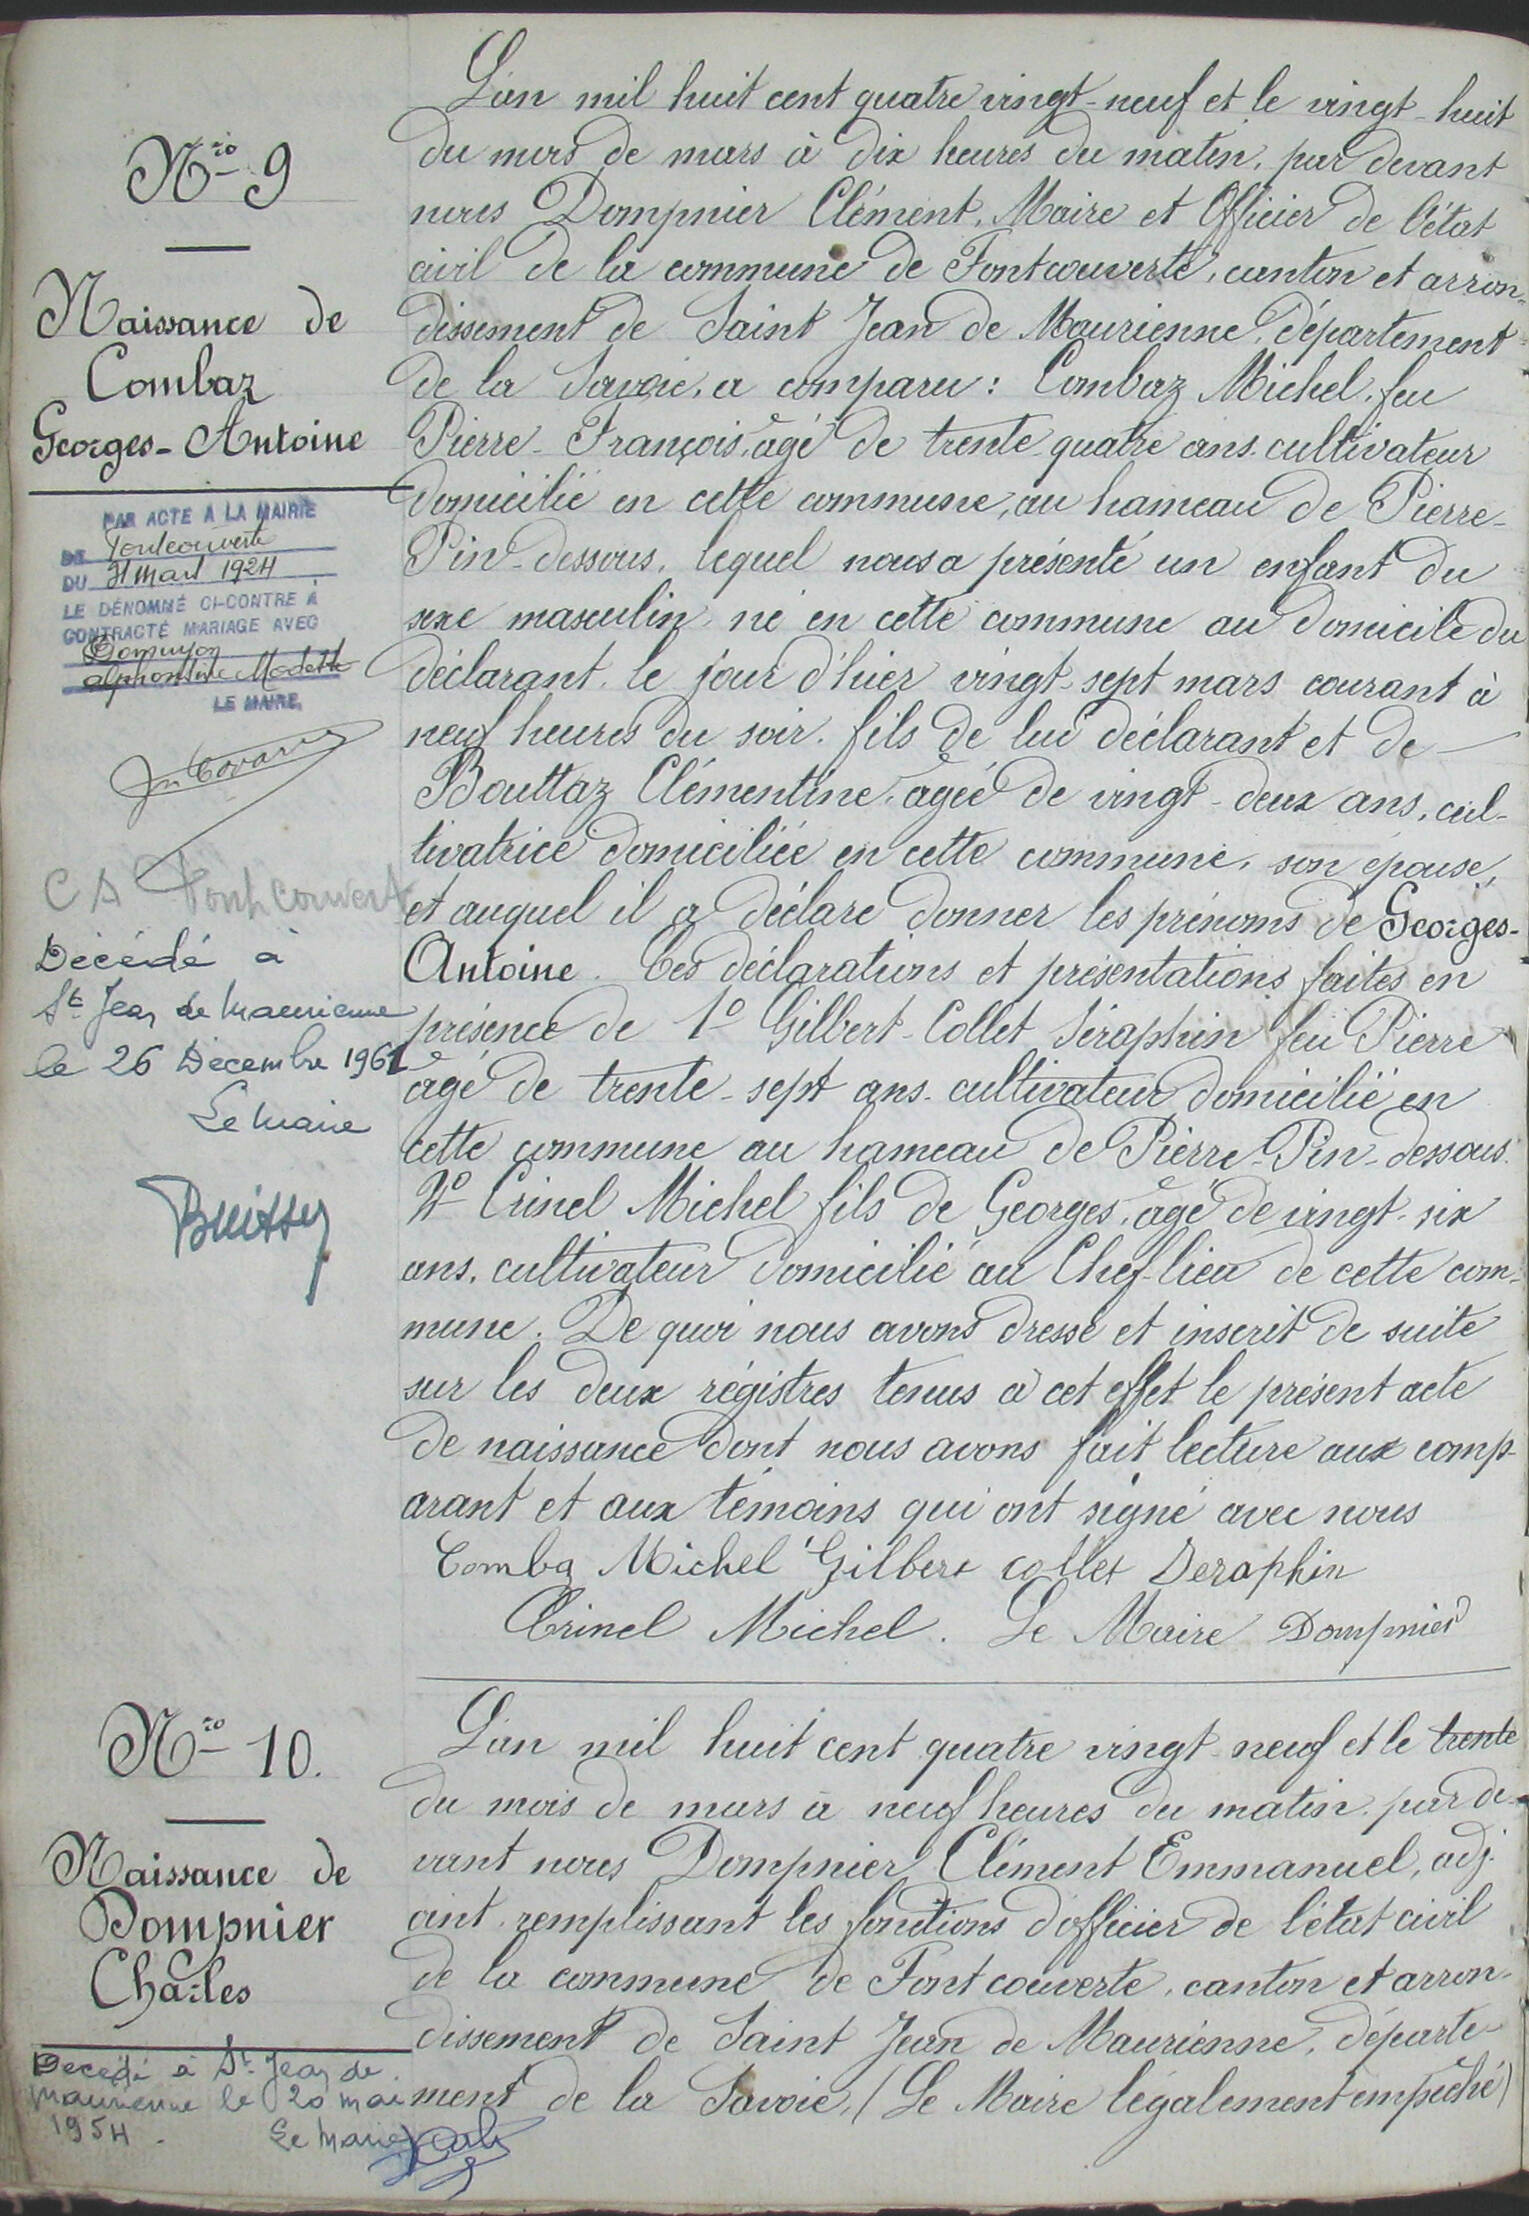 Nro 9
Naissance de
Combaz
Georges-Antoine
PAR ACTE A LA MAIRIE
DE Fontcouverte
DU 31 Mars 1924
LE DÉNOMMÉ CI-CONTRE A
CONTRACTÉ MARIAGE AVEC
Alphonsine Modeste
LE MAIRE,
C A Fontcouvert
Décédé à
St Jean de Maurienne
le 26 Décembre 1961
Le Maire
L'an mil huit cent quatre vingt-neuf et le vingt-huit
du mois de mars à dix heures du matin, par devant
nous Dompnier Clément, Maire et Officier de l'état
civil de la commune de Fontcouverte, canton et arron-
dissement de Saint Jean de Maurienne, département
de la Savoie, a comparu : Combaz Michel, feu
Pierre-François, âgé de trente quatre ans, cultivateur
domicilié en cette commune, au hameau de Pierre-
Pin-dessous, lequel nous a présenté un enfant du
sexe masculin, né en cette commune au domicile du
déclarant, le jour d'hier vingt-sept mars courant à
neuf heures du soir, fils de lui déclarant et de
Bouttaz Clémentine, âgée de vingt-deux ans, cul-
tivatrice domiciliée en cette commune, son épouse,
et auquel il a déclaré donner les prénoms de Georges-
Antoine. Ces déclarations et présentations faites en
présence de 1º Gilbert-Collet Séraphin feu Pierre
âgé de trente-sept ans, cultivateur domicilié en
cette commune au hameau de Pierre-Pin-dessous.
2º Crinel Michel fils de Georges, âgé de vingt-six
ans, cultivateur domicilié au Chef-lieu de cette com-
mune. De quoi nous avons dressé et inscrit de suite
sur les deux régistres tenus à cet effet le présent acte
de naissance dont nous avons fait lecture aux comp-
arant et aux témoins qui ont signé avec nous
Comba Michel Gilbert collet Seraphin
Crinel Michel. Le Maire Dompnier
Nro 10.
Naissance de
Dompnier
Charles
Décédé à St Jean de
Maurienne le 20 mai
1954.
Le Maire
L'an mil huit cent quatre vingt-neuf et le trente
du mois de mars à neuf heures du matin, par de-
vant nous Dompnier Clément Emmanuel, adj-
oint, remplissant les fonctions d'officier de l'état civil
de la commune de Fontcouverte, canton et arron-
dissement de Saint Jean de Maurienne, départe-
ment de la Savoie, (Le Maire légalement empêché)